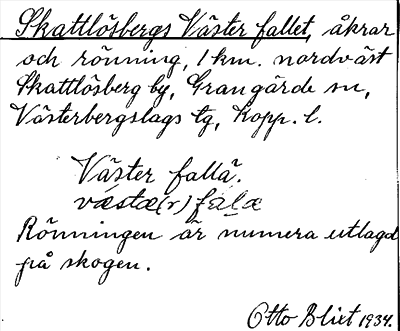 Skattlösbergs Väster fallet, åkrar
och rönning, 1 km. nordväst
Skattlösberg by, Grangärde sn,
Västerbergslags tg, Kopp. l.
Väster fallä.
væstæ(r) falæ
Rönningen är numera utlagd
på skogen.
Otto Blixt 1934.